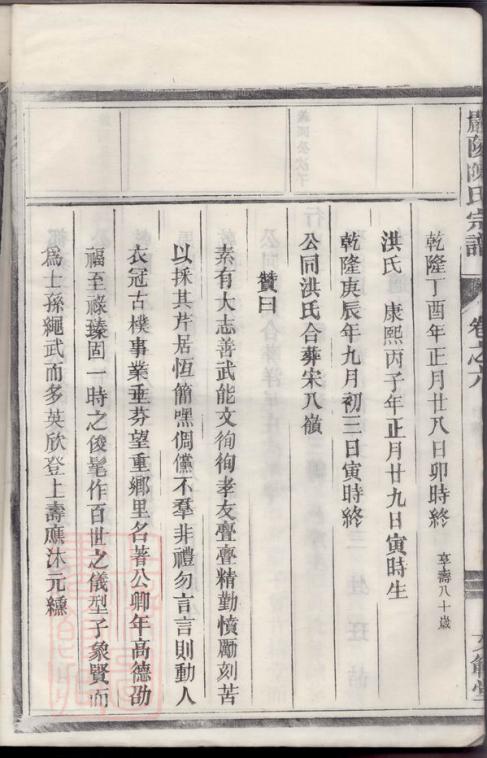 嚴陵陳氏宗譜
卷之六
乾隆丁酉年正月廿八日卯時終 享壽八十歲
洪氏 康熙丙子年正月廿九日寅時生
乾隆庚辰年九月初三日寅時終
公同洪氏合葬宋八嶺
贊曰
素有大志善武能文徇徇孝友亹亹精勤憤勵刻苦
以採其芹居恆簡嘿倜儻不羣非禮勿言言則動人
衣冠古樸事業垂芬望重鄉里名著公卿年高德劭
福至祿臻固一時之俊髦作百世之儀型子象賢而
為士孫繩武而多英欣登上壽應沐元纁